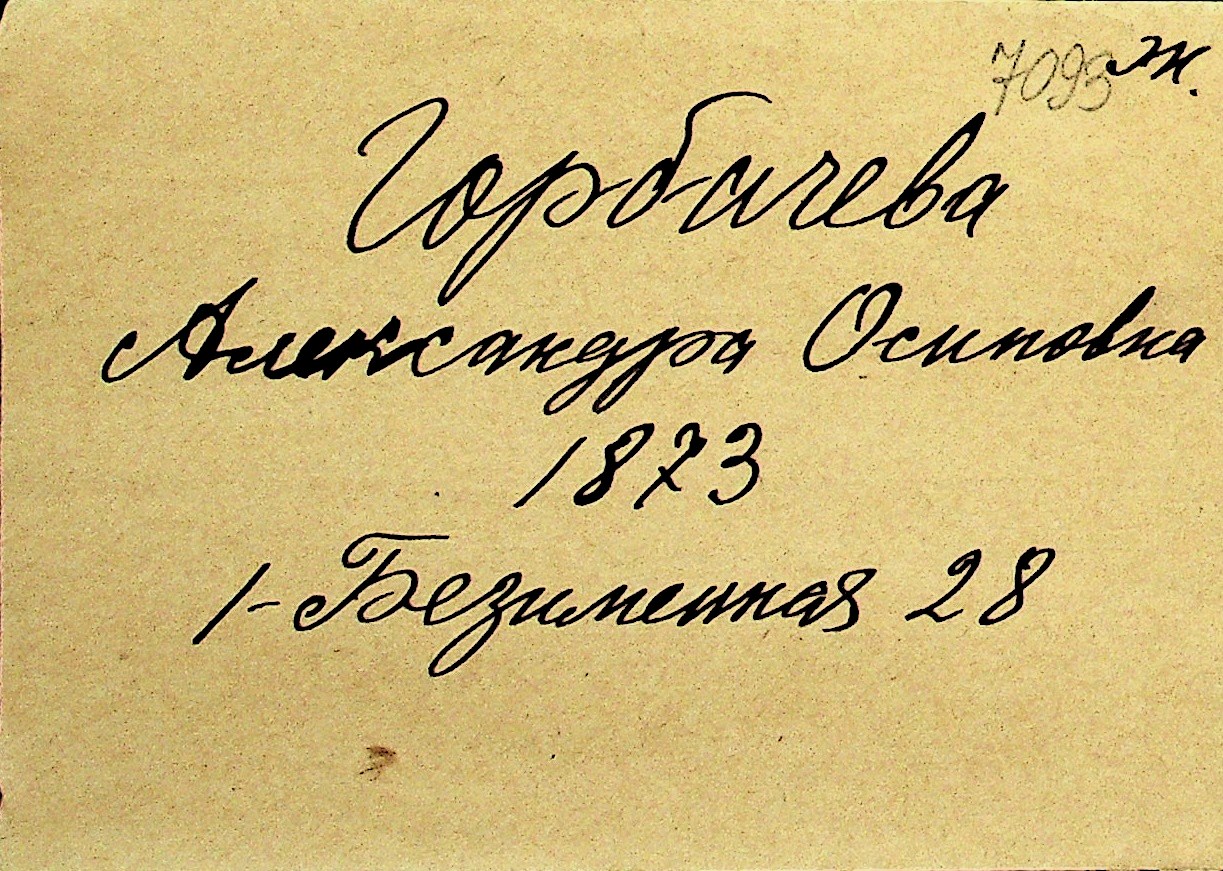 7093 Ж.
Горбачева
Александра Осиповна
1873
1-Безименная 28